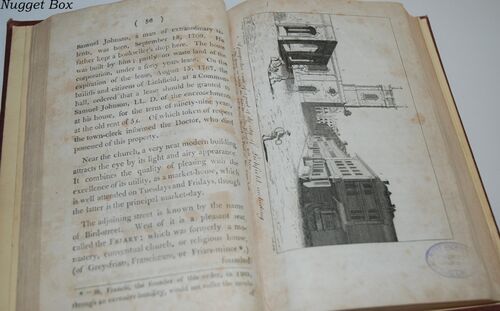 Nugget Box
( 56 )
Samuel Johnson, a man of extraordinary ta-
lents, was born, September 18, 1709. His
father kept a bookseller's shop here. The house
was built by him; partly on waste land of the
corporation, under a forty years lease. On the
expiration of the lease, August 15, 1767, the
bailiffs and citizens of Lichfield, at a Common
hall, ordered that a lease should be granted to
Samuel Johnson, LL. D. of the encroachment
at his house, for the term of ninety-nine years,
at the old rent of 5s. Of which token of respect
the town-clerk informed the Doctor, who died
possessed of this property.
Near the church, a very neat modern building,
attracts the eye by its light and airy appearance.
It combines the quality of pleasing with the
excellence of its utility, as a market-house, which
is well attended on Tuesdays and Fridays, though
the latter is the principal market-day.
The adjoining street is known by the name
of Bird-street. West of it is a pleasant seat,
called the FRIARY; which was formerly a mo-
nastery, conventual church, or religious house,
(of Grey-friars, Franciscans, or Friars-minors *,)
founded
* St. Francis, the founder of this order, in
through an excessive humility, would not suffer the